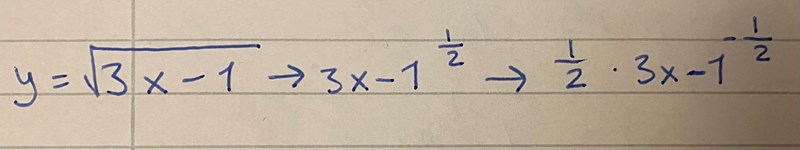 y = √3x-1 → 3x-1^(1/2) → 1/2 · 3x-1^(-1/2)